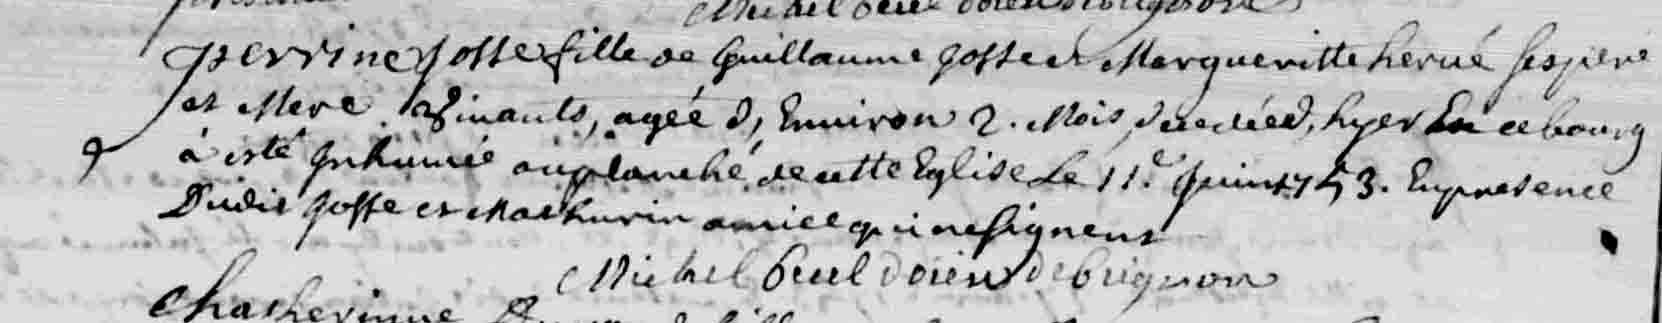 Michel beul doien de brignon
perrine Josse fille de Guillaume Josse et Margueritte hervé ses pere
et Mere vivants, agée d, Environ 2. Mois, decedée d, hyer En ce bourg
à esté Inhumée au planché de cette Eglise Le 11.e Juin 1753. En presence
Dudit Josse et Mathurin amice qui ne signent
Michel beul doien de brignon
Chatherinne